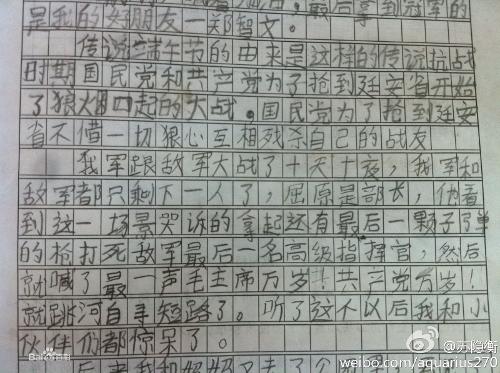 最后拿到冠军的
是我的好朋友一郑智文。
传说端午节的由来是这样的传说抗战
时期国民党和共产党为了抢到廷安省开始
了狼烟四起的大战。国民党为了抢到廷安
省不惜一切狠心互相残杀自己的战友
我军跟敌军大战了十天十夜，我军和
敌军都只剩下一人了，屈原是部长，他看
到这一场景哭诉的拿起还有最后一颗子弹
的枪打死敌军最后一名高级指挥官，然后
就喊了最一声毛主席万岁！共产党万岁！
就跳河自寻短路了。听了这个以后我和小
伙伴们都惊呆了。
后来我和
Bai百科
@苏隐衡
weibo.com/aquarius270